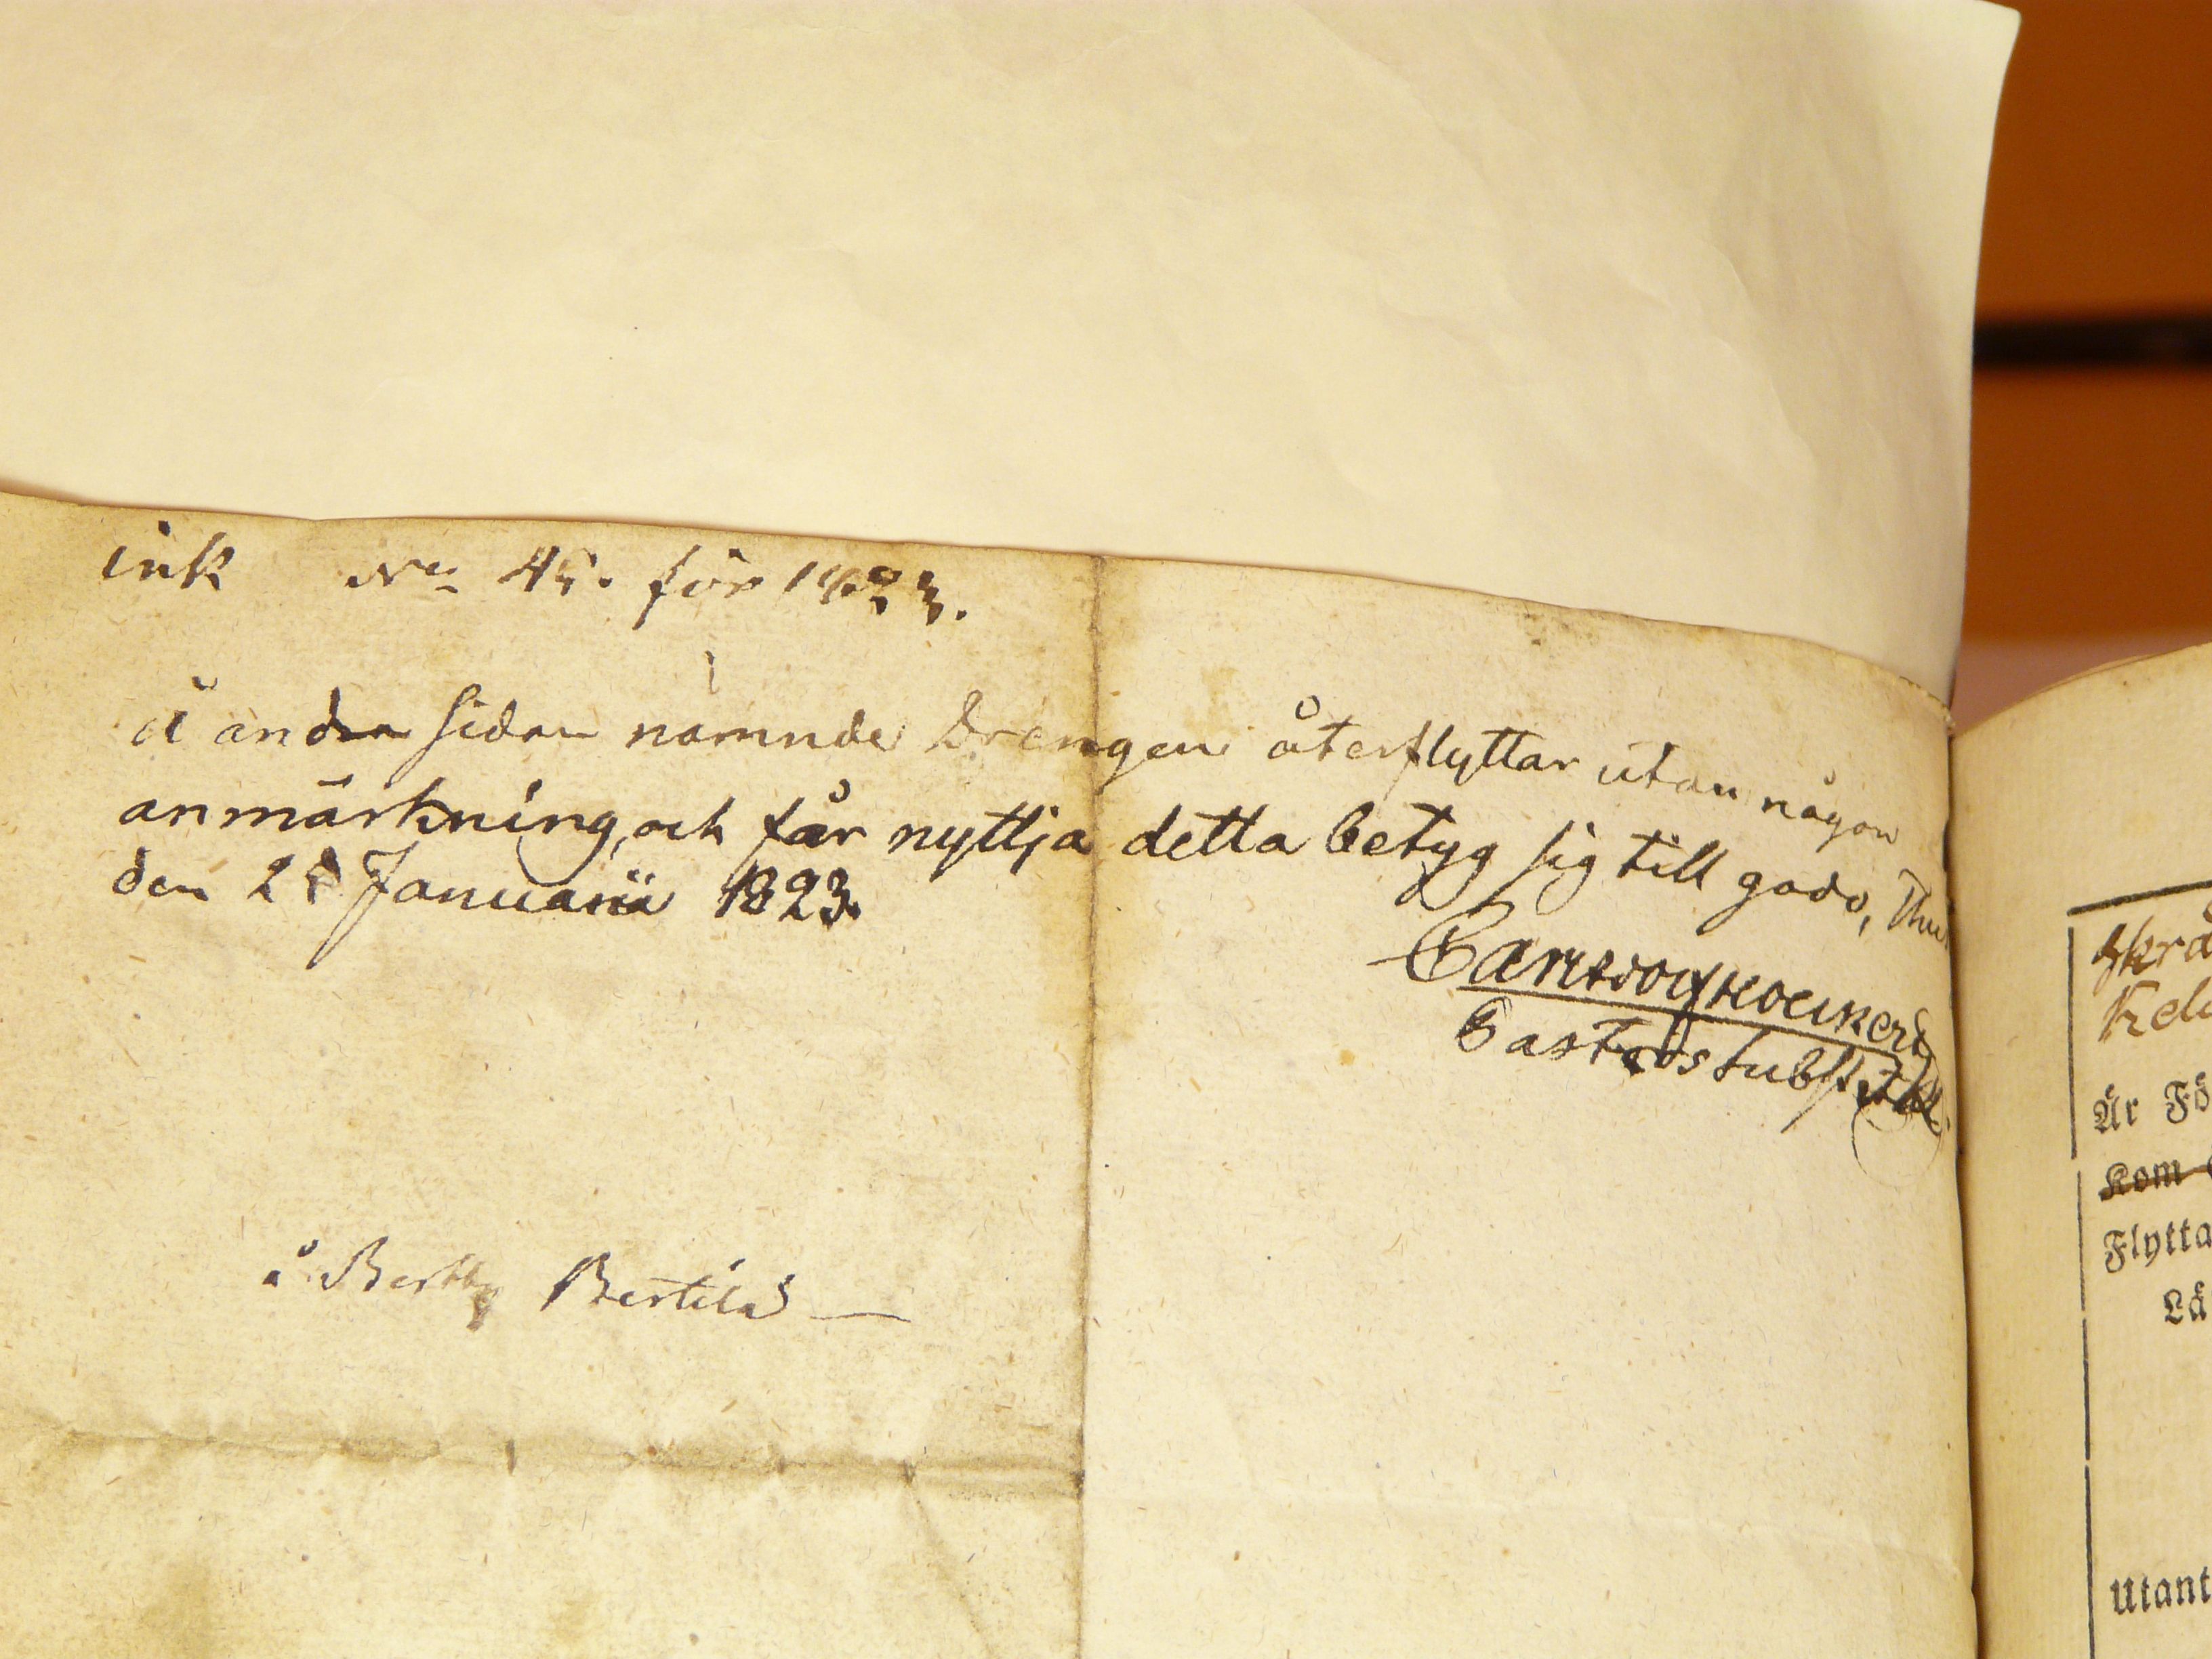 ink No 45. för 1823.
Å andra sidan nämnde Drengen återflyttar utan någon
anmärkning, och får nyttja detta betyg sig till godo,
den Januarii 1823.
å Bertby Bertils —
Kela
Är Fö
Kom
Flytta
Lä
Utant